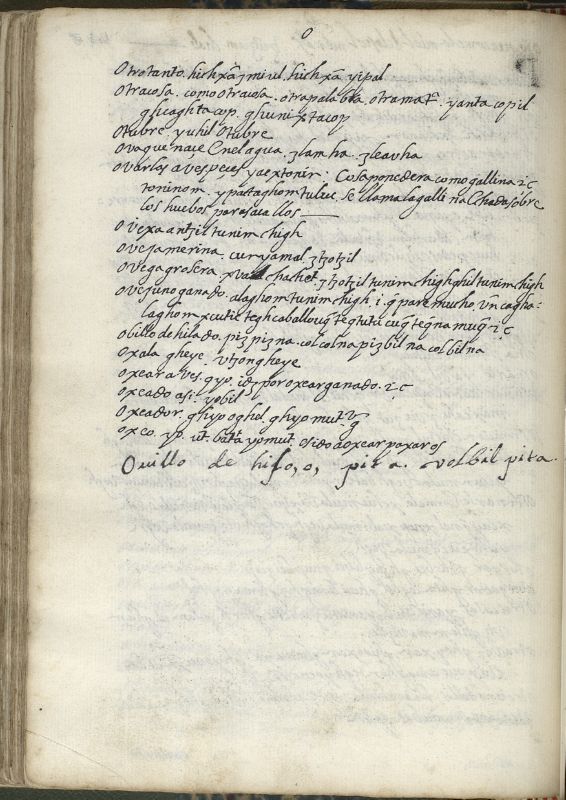 O
Otrotanto. hichxã ʒmiul. hichxã yipal
otra cosa. como otra cosa. otra palabra. otra matª. yanta copil
ghcaghta cop. ghunixtacop
Otubre. yuhil Otubre
Ova que naçe Enel agua. ʒlamha. ʒleavha
ovar las aves, peces. yaextonin. Cosa ponedera como gallina. i.ç
toninom. ypattaghom tuluc. se llama la gallina Echada sobre
los huebos para sacallos
Ovexa antzil tunimchigh
oveja merina. cuxyamal. ʒtzotzil
oveja grosera. chachet. ʒtzotzil tunimchigh ghil tunimchigh
ovejuno ganado. alaghom tunimchigh. i. q pare mucho. Vn cagha:
laghom
obillo de hilado. pizpizna. colcolna pizbil na colbil na
oxala. gheye. vtzongheye
oxear aves. yyp. por oxear ganado. i.ç
oxeado asi. yobil
oxeador. ghyyoghel. ghyyomut.
oxeo. yp. ut. yypmut. osido a oxear paxaros
Ouillo de hilo, o, pita. volbil pita.